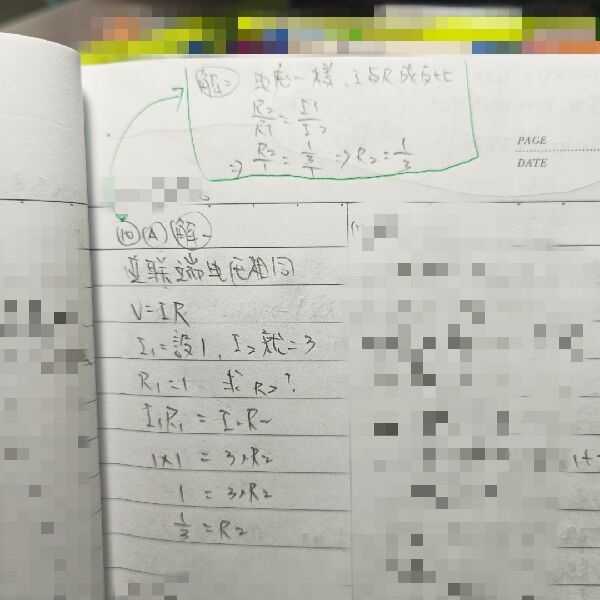 解二 電壓一樣,I與R成反比
R₂/R₁ = I₁/I₂
⇒ R₂/1 = 1/3/1 ⇒ R₂ = 1/3
PAGE
DATE
⑩ (A) 解一
並聯端電壓相同
V=IR
I₁=設1, I₂就=3
R₁=1 求R₂?
I₁R₁ = I₂R₂
1×1 = 3×R₂
1 = 3×R₂
1/3 = R₂
1+